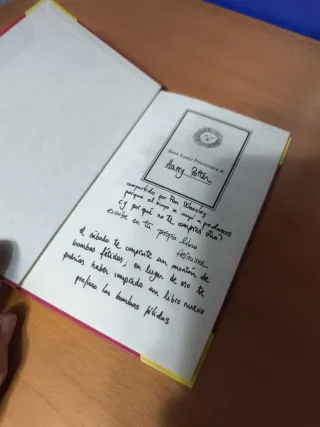 Este Libro Pertenece A
Harry Potter
compartido por Ron Weasley
porque el suyo se cayó a pedazos
¿y por qué no te compras otro?
escribe en tu propio libro
Hermione
el sábado te compraste un montón de
bombas fétidas; en lugar de eso te
podrías haber comprado un libro nuevo
prefiero las bombas fétidas